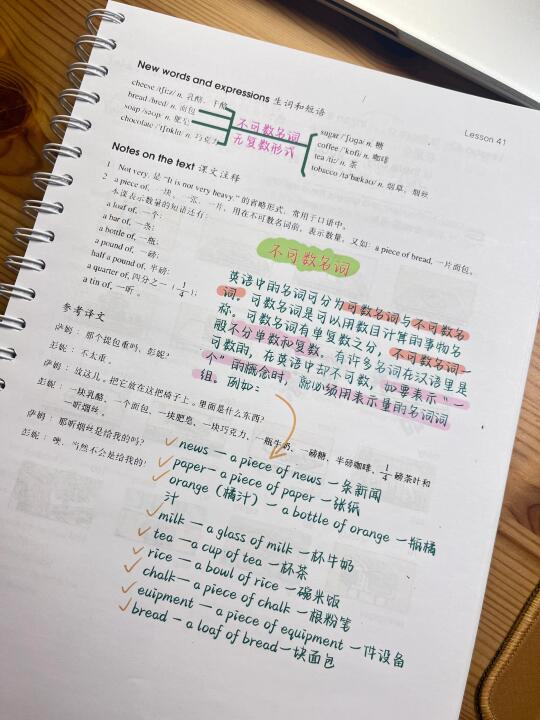 Lesson 41
New words and expressions 生词和短语
cheese /tʃiːz/ n. 乳酪，干酪
bread /bred/ n. 面包
soap /səʊp/ n. 肥皂
chocolate /'tʃɒklɪt/ n. 巧克力
不可数名词
无复数形式
sugar /'ʃʊgə/ n. 糖
coffee /'kɒfi/ n. 咖啡
tea /tiː/ n. 茶
tobacco /tə'bækəʊ/ n. 烟草，烟丝
Notes on the text 课文注释
1 Not very. 是 "It is not very heavy." 的省略形式，常用于口语中。
2 a piece of, 一块、一张、一片，用在不可数名词前，表示数量，又如：a piece of bread, 一片面包。
本课表示数量的短语还有：
a loaf of, 一个；
a bar of, 一条；
a bottle of, 一瓶；
a pound of, 一磅；
half a pound of, 半磅；
a quarter of, 四分之一（1/4）；
a tin of, 一听。
不可数名词
英语中的名词可分为可数名词与不可数名
词。可数名词是可以用数目计算的事物名
称。可数名词有单复数之分，不可数名词一
般不分单数和复数。有许多名词在汉语里是
可数的，在英语中却不可数，如要表示"一
个"的概念时，就必须用表示量的名词词
组。例如：
参考译文
萨姆：那个提包重吗，彭妮？
彭妮：不太重。
萨姆：放这儿。把它放在这把椅子上。里面是什么东西？
彭妮：一块乳酪、一个面包、一块肥皂、一块巧克力、一瓶牛奶、一磅糖、半磅咖啡、1/4 磅茶叶和
一听烟丝。
萨姆：那听烟丝是给我的吗？
彭妮：噢，当然不会是给我的！
news — a piece of news 一条新闻
paper — a piece of paper 一张纸
orange（橘汁）— a bottle of orange 一瓶橘
汁
milk — a glass of milk 一杯牛奶
tea — a cup of tea 一杯茶
rice — a bowl of rice 一碗米饭
chalk — a piece of chalk 一根粉笔
euipment — a piece of equipment 一件设备
bread — a loaf of bread 一块面包